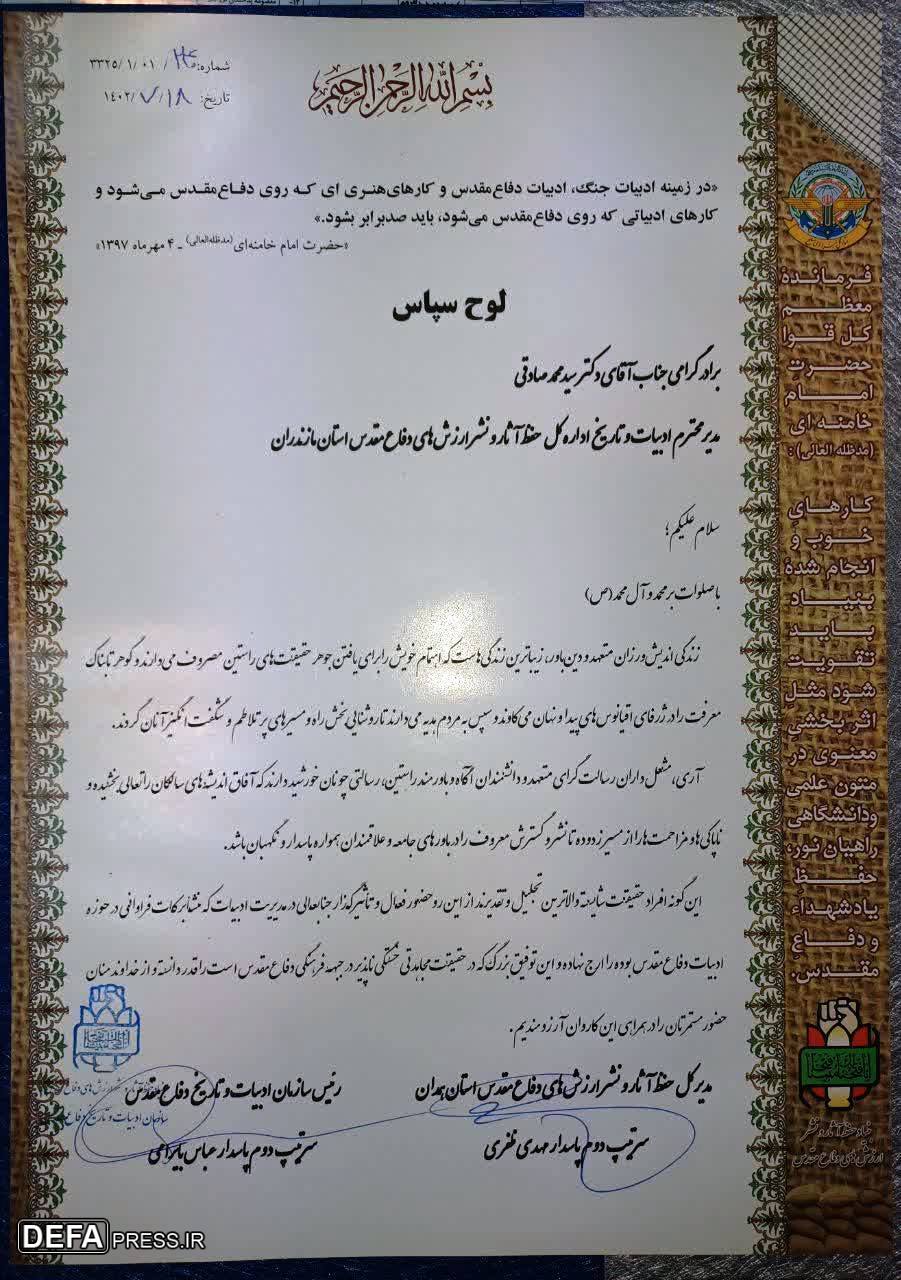 بسم الله الرحمن الرحیم
شماره: ۳۳۲۵/۱/۰۱/
تاریخ: ۱۴۰۲/۷/۱۸
«در زمینه ادبیات جنگ، ادبیات دفاع مقدس و کارهای هنری ای که روی دفاع مقدس می‌شود و
کارهای ادبیاتی که روی دفاع مقدس می‌شود، باید صدبرابر بشود.»
«حضرت امام خامنه‌ای (مدظله‌العالی) - ۴ مهرماه ۱۳۹۷»
لوح سپاس
برادر گرامی جناب آقای دکتر سید محمد صادقی
مدیر محترم ادبیات و تاریخ اداره کل حفظ آثار و نشر ارزش های دفاع مقدس استان مازندران
سلام علیکم؛
با صلوات بر محمد و آل محمد (ص)
زندگی اندیش‌ورزان متعهد و دین‌باور، زیباترین زندگی‌هاست که اهتمام خویش را برای یافتن جوهر حقیقت‌های راستین مصروف می‌دارند و گوهر تابناک
معرفت را در ژرفای اقیانوس‌های پیدا و نهان می‌کاوند و سپس به مردم هدیه می‌دارند تا روشنایی بخش راه و مسیرهای پر تلاطم و شگفت انگیز آنان گردند.
آری، مشعل داران رسالت گرای متعهد و دانشمندان آگاه و باورمند راستین، رسالتی چونان خورشید دارند که آفاق اندیشه‌های سالکان را تعالی بخشیده و
ناپاکی‌ها و مزاحمت‌ها را از مسیر زدوده تا نشر و گسترش معروف را در باورهای جامعه و علاقمندان همواره پاسدار و نگهبان باشد.
این گونه افراد حقیقت شایسته والاترین تجلیل و تقدیرند از این رو حضور فعال و تأثیرگذار جنابعالی در مدیریت ادبیات که منشأ برکات فراوانی در حوزه
ادبیات دفاع مقدس بوده را ارج نهاده و این توفیق بزرگ که در حقیقت مجاهدتی خستگی ناپذیر در جبهه فرهنگی دفاع مقدس است را قدر دانسته و از خداوند منان
حضور مستمرتان را در همراهی این کاروان آرزومندیم.
مدیر کل حفظ آثار و نشر ارزش های دفاع مقدس استان همدان
سرتیپ دوم پاسدار مهدی ظفری
رئیس سازمان ادبیات و تاریخ دفاع مقدس
سرتیپ دوم پاسدار عباس بایرامی
سازمان ادبیات و تاریخ دفاع
فرماندهٔ
معظم
کل قوا
حضرت
امام
خامنه ای
(مدظله العالی):
کارهای
خوب و
انجام شدهٔ
بنیاد
باید
تقویت
شود مثل
اثر بخشی
معنوی در
متون علمی
ودانشگاهی
راهیان نور،
حفظ
یادشهداء
و دفاع
مقدس.
بنیاد حفظ آثار و نشر
ارزش های دفاع مقدس
DEFAPRESS.IR